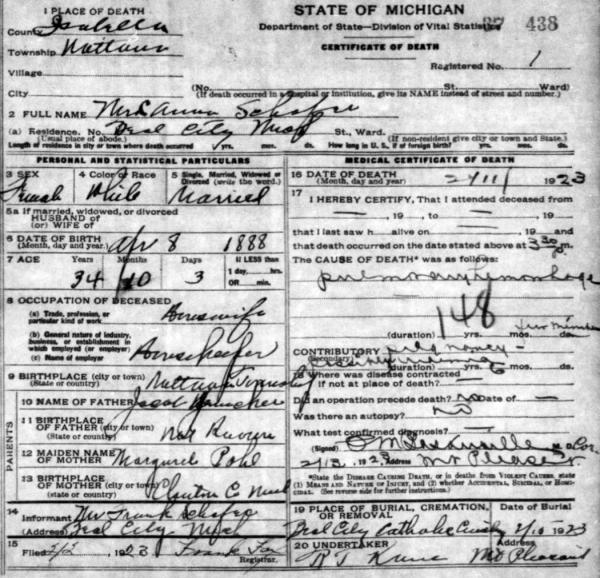 STATE OF MICHIGAN
Department of State—Division of Vital Statistics
37 438
CERTIFICATE OF DEATH
Registered No. 1
1 PLACE OF DEATH
County Isabella
Township Nottawa
Village
City
(No. St. Ward)
(If death occurred in a hospital or institution, give its NAME instead of street and number.)
2 FULL NAME Mrs Anna Schafer
(a) Residence. No. Beal City Mich St., Ward.
(Usual place of abode.) (If non-resident give city or town and State.)
Length of residence in city or town where death occurred yrs. mos. ds. How long in U. S., if of foreign birth? yrs. mos. ds.
PERSONAL AND STATISTICAL PARTICULARS
3 SEX
Female
4 Color of Race
White
5 Single, Married, Widowed or Divorced (write the word.)
Married
5a If married, widowed, or divorced
HUSBAND of
(or) WIFE of
6 DATE OF BIRTH
(Month, day and year.) Apr 8 1888
7 AGE Years Months Days If LESS than
34 10 3
1 day,....hrs.
OR.....min.
8 OCCUPATION OF DECEASED
(a) Trade, profession, or
particular kind of work Housewife
(b) General nature of industry,
business, or establishment in
which employed (or employer)
(c) Name of employer Housekeeper
9 BIRTHPLACE (city or town)
(State or country) Nottawa Township
PARENTS
10 NAME OF FATHER Jacob
11 BIRTHPLACE
OF FATHER (city or town)
(State or country) Not Known
12 MAIDEN NAME
OF MOTHER Margaret Pohl
13 BIRTHPLACE
OF MOTHER (city or town)
(State or country) Clinton Co Mich
14
Informant Mr Frank Schafer
(Address) Beal City Mich
15
Filed 2/2 1923 Frank Fox
Registrar.
MEDICAL CERTIFICATE OF DEATH
16 DATE OF DEATH
(Month, day and year) 2/11/ 1923
17
I HEREBY CERTIFY, That I attended deceased from
, 19 , to , 19 ,
that I last saw h alive on , 19 ,
that death occurred on the date stated above at 3 30 m.
The CAUSE OF DEATH* was as follows:
pulmonary hemorrhage
148
(duration) yrs. mos. ds.
CONTRIBUTORY
(Secondary)
(duration) yrs. mos. ds.
18 Where was disease contracted
if not at place of death?
Did an operation precede death? no Date of
Was there an autopsy? no
What test confirmed diagnosis?
(Signed)
2/13, 1923, Address Mt Pleasant
*State the DISEASE CAUSING DEATH, or in deaths from VIOLENT CAUSES, state
(1) MEANS AND NATURE OF INJURY, and (2) whether ACCIDENTAL, SUICIDAL, or HOMICIDAL.
(See reverse side for further instructions.)
19 PLACE OF BURIAL, CREMATION, OR REMOVAL
Date of Burial
Beal City Catholic 2/15 1923
20 UNDERTAKER Address
Mt Pleasant